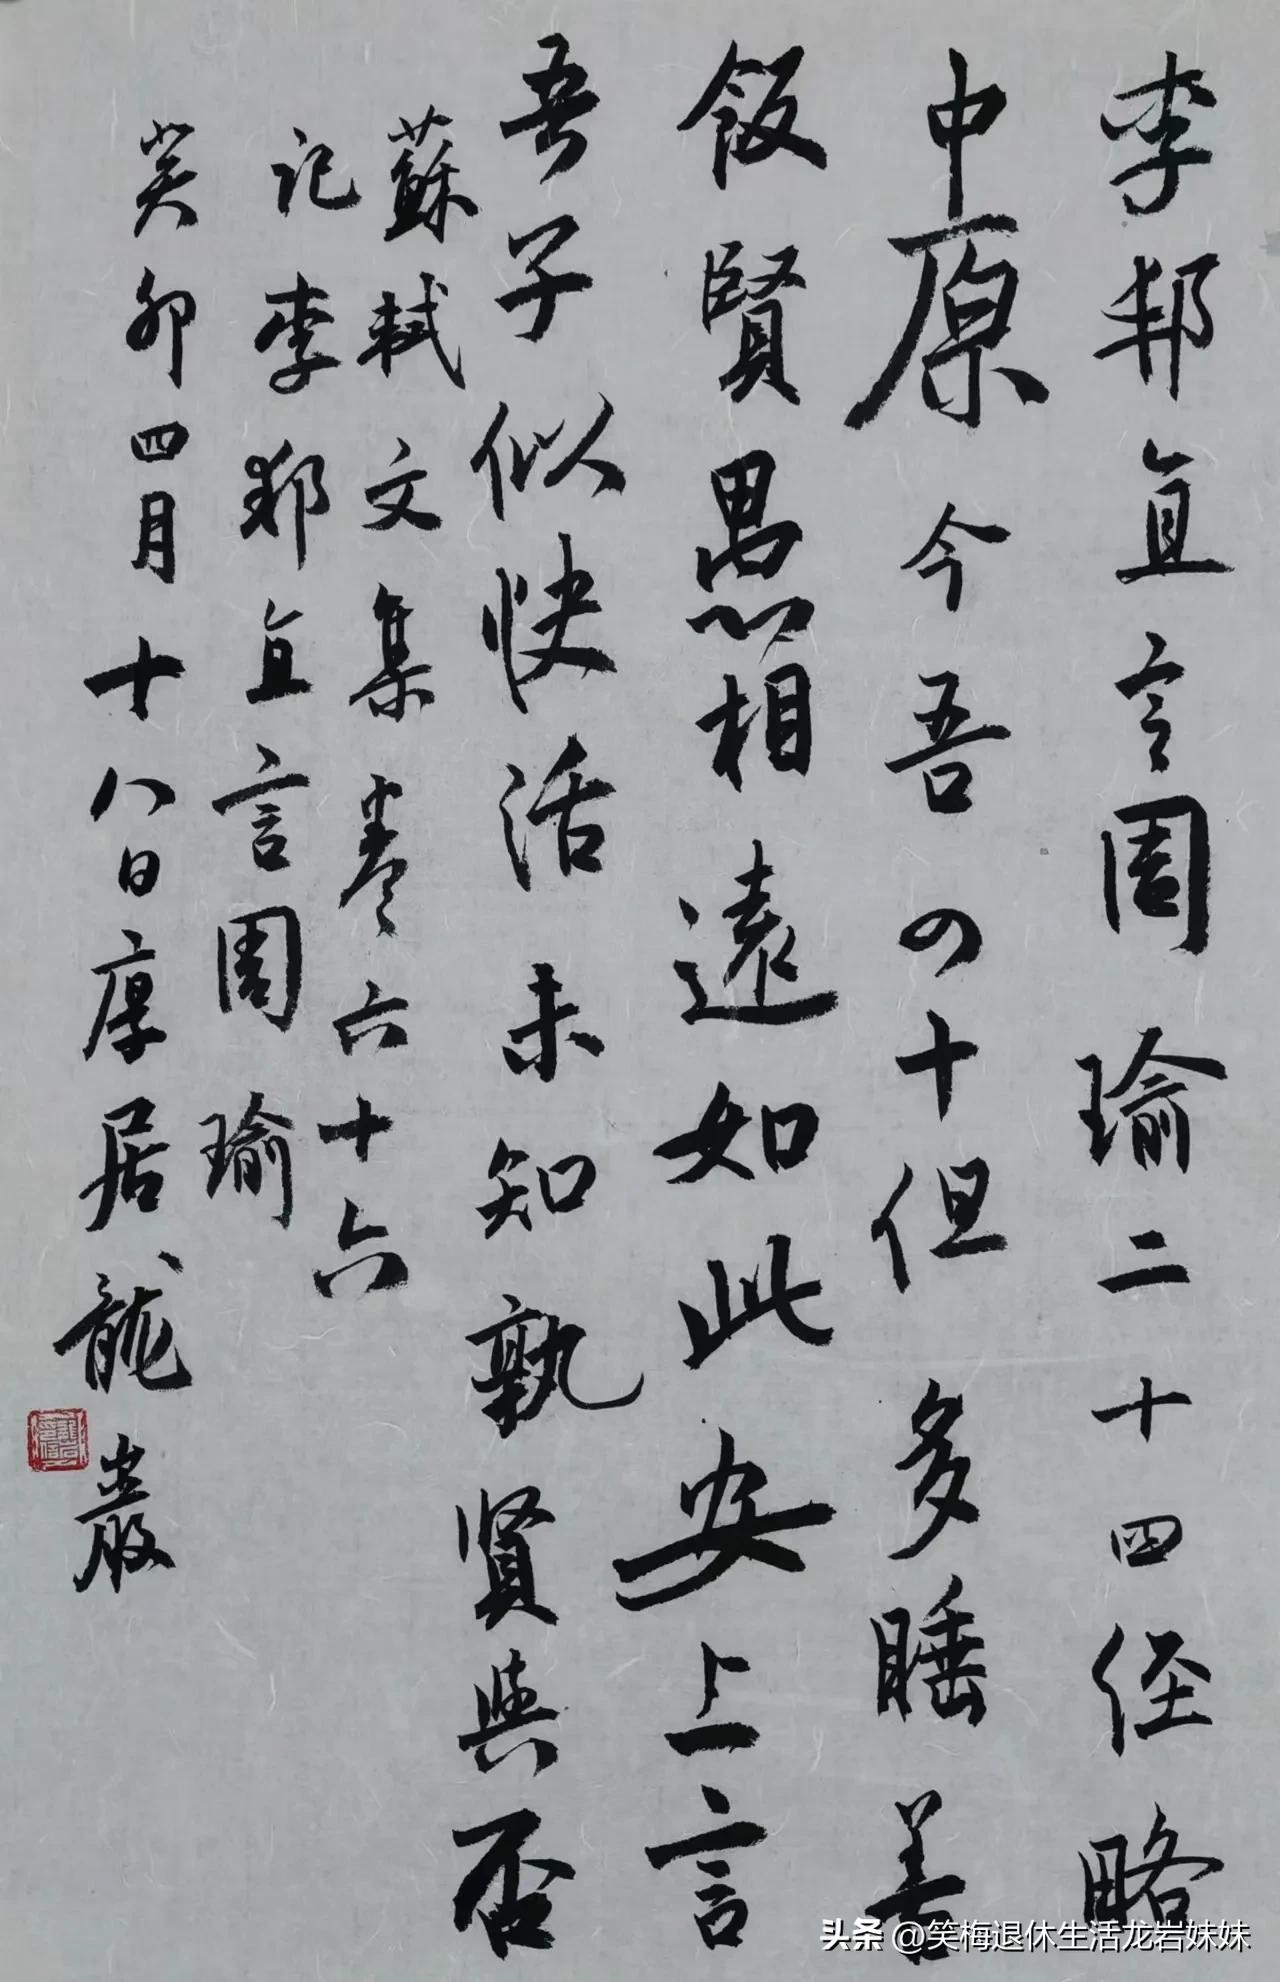 李邦直言周瑜二十四经略
中原今吾四十但多睡善
饭賢愚相遠如此安上言
吾子似快活未知孰贤與否
蘇軾文集卷六十六
记李邦直言周瑜
癸卯四月十八日厚居龍巖
头条 @笑梅退休生活龙岩妹妹